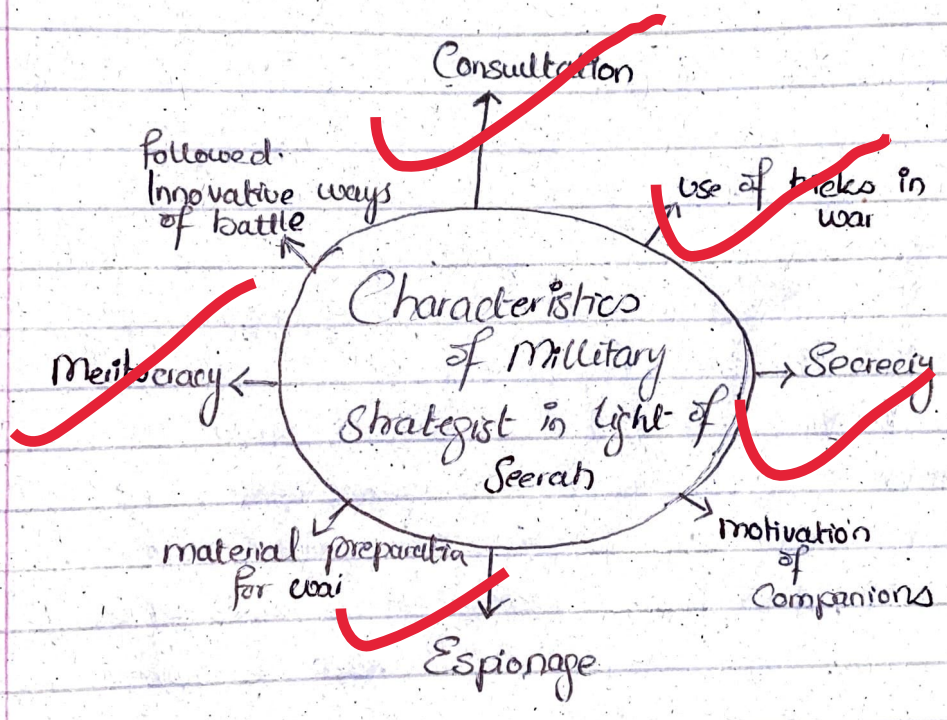 Consultation
followed.
Innovative ways
of battle
use of tricks in
war
Characteristics
of Millitary
Strategist in light of
Seerah
Meritocracy
Secreciy
material preparatin
for wai
motivation
of
Companions
Espionage